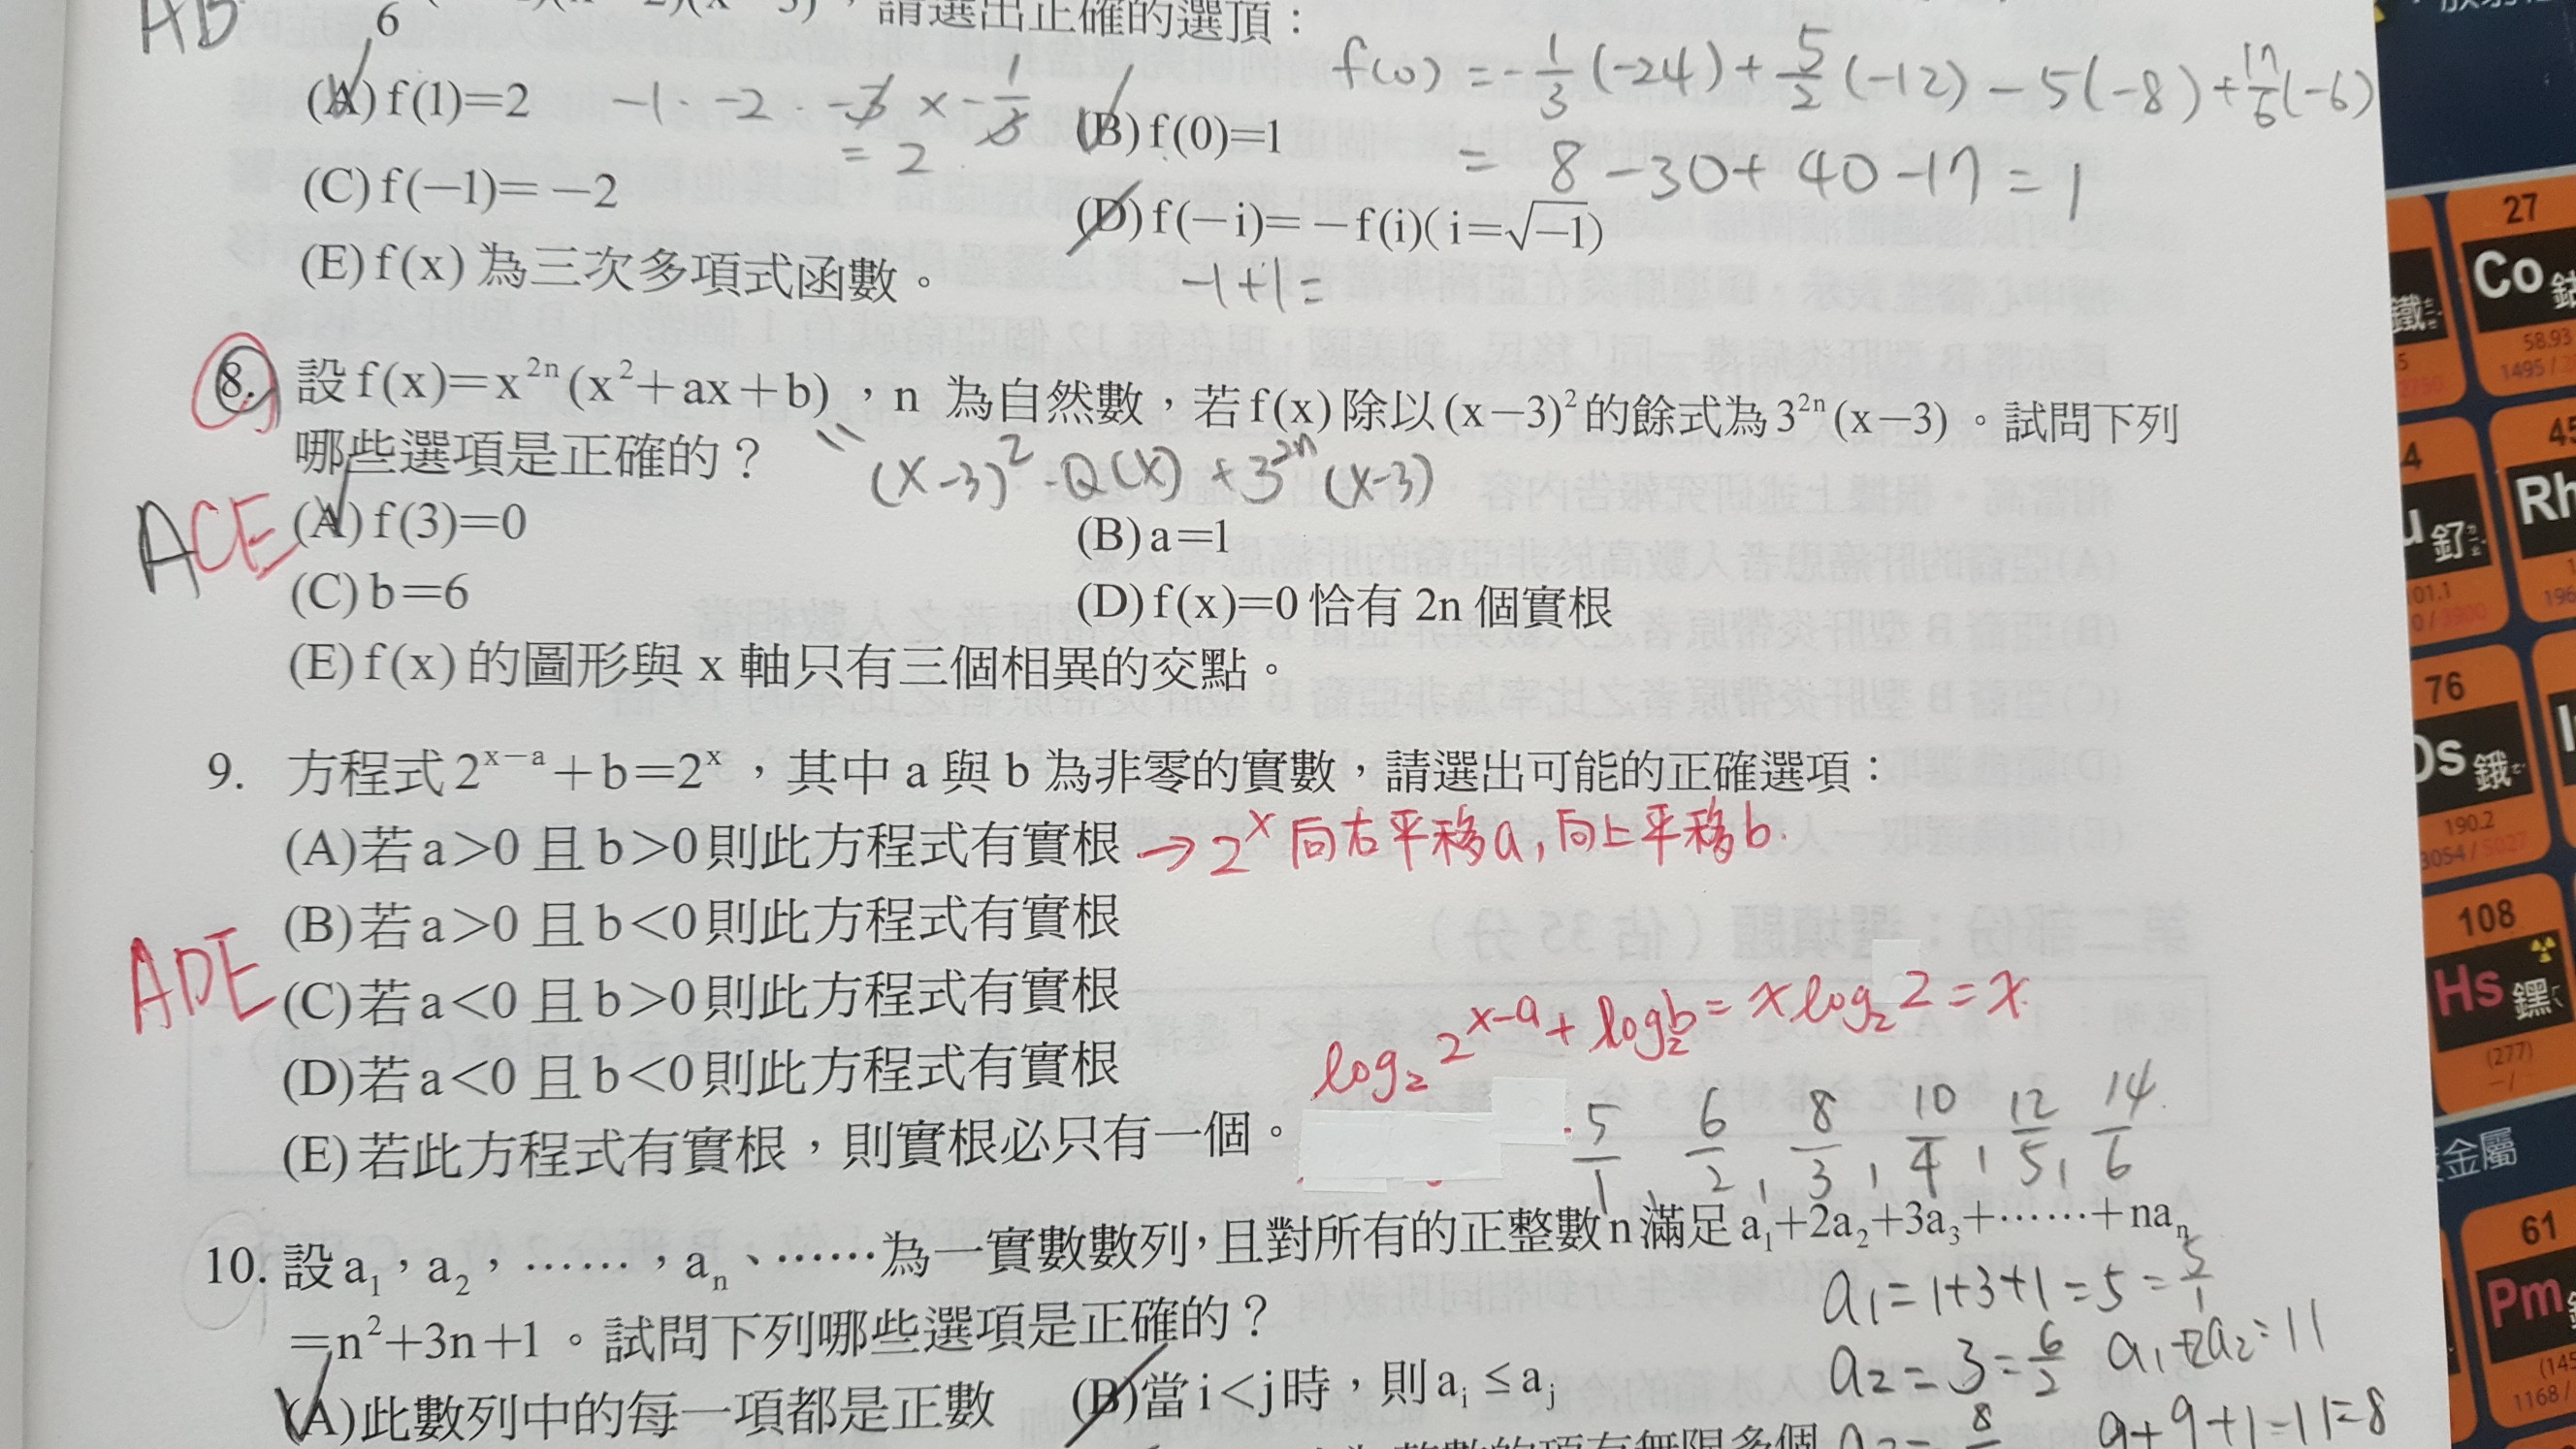 AB
6
，請選出正確的選項：
(A) f(1)=2
−1 · −2 · −3 × −1/3
= 2
(B) f(0)=1
f(0) = −1/3(−24) + 5/2(−12) − 5(−8) + 17/6(−6)
= 8 − 30 + 40 − 17 = 1
(C) f(−1)=−2
(D) f(−i)=−f(i)(i=√−1)
(E) f(x) 為三次多項式函數。
−1+1=
8. 設 f(x)=x²ⁿ(x²+ax+b)，n 為自然數，若 f(x) 除以 (x−3)² 的餘式為 3²ⁿ(x−3)。試問下列
哪些選項是正確的？
(x−3)² · Q(x) + 3²ⁿ (x−3)
ACE
(A) f(3)=0
(B) a=1
(C) b=6
(D) f(x)=0 恰有 2n 個實根
(E) f(x) 的圖形與 x 軸只有三個相異的交點。
9. 方程式 2ˣ⁻ᵃ+b=2ˣ，其中 a 與 b 為非零的實數，請選出可能的正確選項：
(A)若 a>0 且 b>0 則此方程式有實根 → 2ˣ 向右平移a, 向上平移b.
(B)若 a>0 且 b<0 則此方程式有實根
ADE
(C)若 a<0 且 b>0 則此方程式有實根
(D)若 a<0 且 b<0 則此方程式有實根
log₂ 2ˣ⁻ᵃ + log₂b = x log₂ 2 = x
(E)若此方程式有實根，則實根必只有一個。
5/1, 6/2, 8/3, 10/4, 12/5, 14/6
10. 設 a₁，a₂，……，aₙ、……為一實數數列，且對所有的正整數 n 滿足 a₁+2a₂+3a₃+……+naₙ
=n²+3n+1。試問下列哪些選項是正確的？
a₁ = 1+3+1 = 5 = 5/1
a₂ = 3 = 6/2 a₁+2a₂=11
(A)此數列中的每一項都是正數
(B)當 i<j 時，則 aᵢ ≤ aⱼ
9+9+1−11=8
27
Co 鈷
58.93
鐵
Rh
釕
101.1
76
Os 鋨
190.2
3054 / 5027
108
Hs 鎟
(277)
金屬
61
Pm